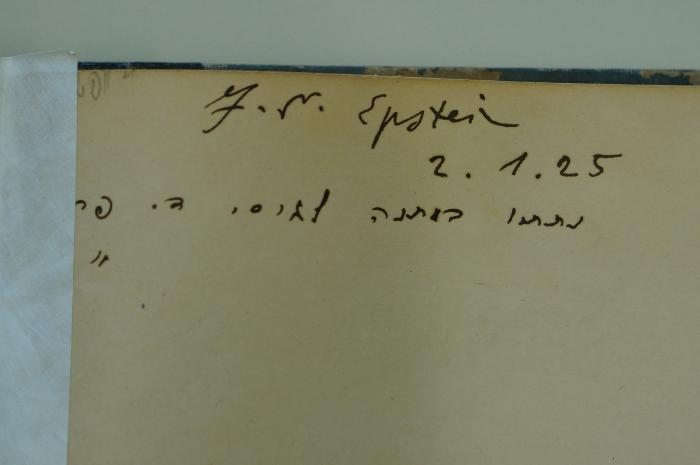 J. N. Epstein
2. 1. 25
נתתיו במתנה לגיסי ד.